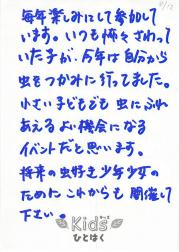 9/12
毎年楽しみにして参加して
います。いつも怖々さわって
いた子が、今年は自分から
虫をつかみに行ってました。
小さい子どもでも虫にふれ
あえるよい機会になる
イベントだと思います。
将来の虫好き少年少女の
ためにこれからも開催して
下さい。
Kids
ひとはく